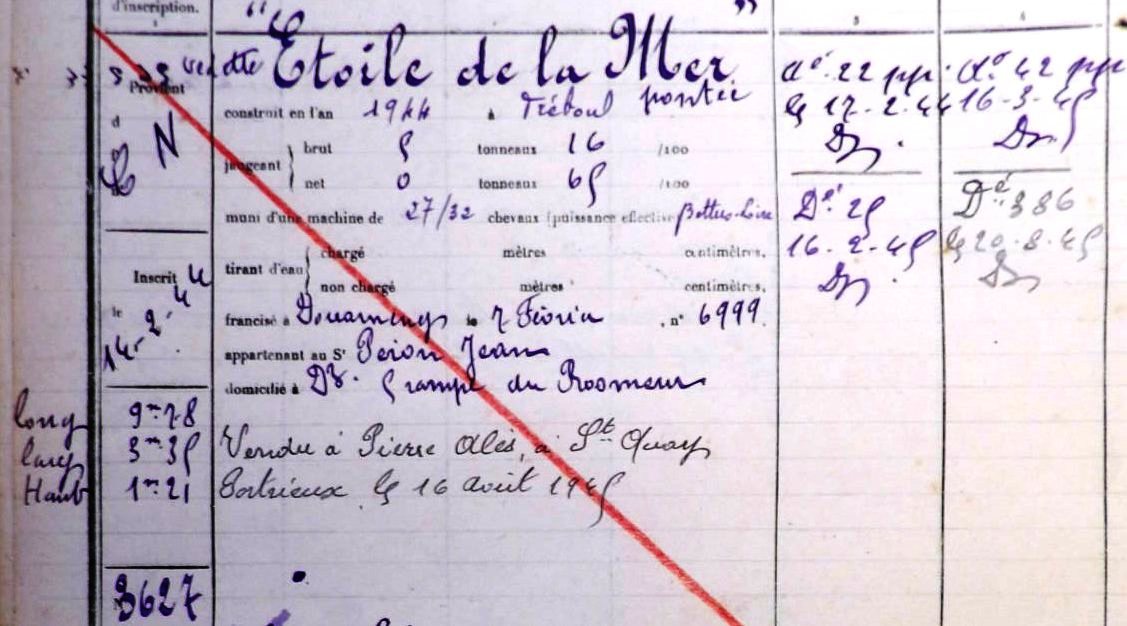 d'inscription.
" "
vedette Etoile de la Mer
Provient
d
N
construit en l'an 1944 à Tréboul pontée
jaugeant
brut 5 tonneaux 16 /100
net 0 tonneaux 65 /100
muni d'une machine de 27/32 chevaux (puissance effective
tirant d'eau
chargé mètres centimètres.
non chargé mètres centimètres.
Inscrit
le 14-2-44
francisé à Douarnenez le 7 Février , n° 6999.
appartenant au Sr Peron Jean
domicilié à Dz. 5 rampe du Rosmeur
long 9m78
larg 3m35
Haut 1m21
Vendu à Pierre Alès, à St Quay
Portrieux le 16 août 1945
3627
3
d° 22 pp.
le 17-2-44
Dz.
D° 25
16-2-45
Dz.
4
d° 42 pp
16-3-45
Dz
D° 386
le 20-8-45
Dz